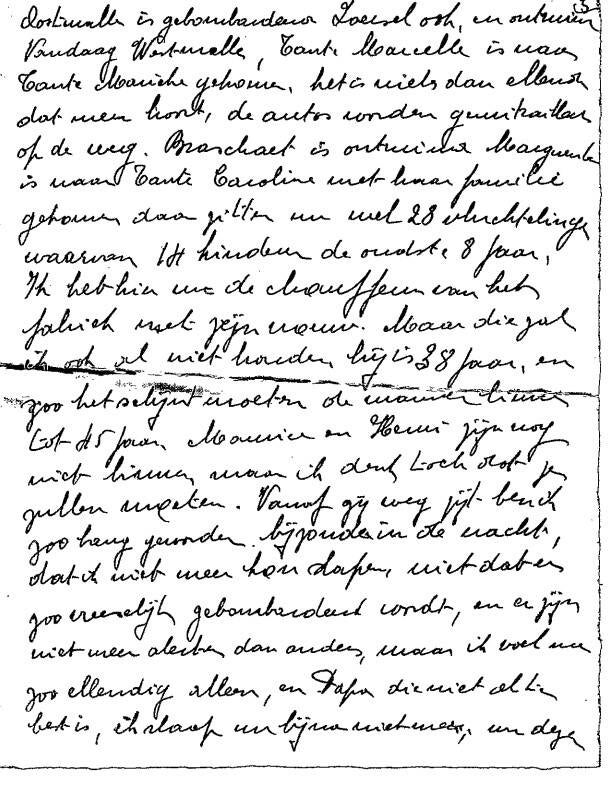 3
Oostmalle is gebombardeerd Zoersel ook, en ontruimen
Vandaag Westmalle, Tante Marcelle is naar
Tante Marieke gekomen, het is niets dan ellende
dat men hoort, de autos worden gemitrailleerd
op de weg. Braschaet is ontruimd
is naar Tante Caroline met haar familie
gekomen daar zitten nu wel 28 vluchtelingen
waarvan 14 kinderen de oudste 8 Jaar,
Ik heb hier nu de chauffeur van het
fabriek met zijn vrouw. Maar die zal
ik ook al niet houden, hij is 38 Jaar, en
zoo het schijnt moeten de mannen binnen
tot 45 Jaar, Maurice en Henri zijn nog
niet binnen, maar ik denk toch dat ze
zullen moeten. Vanaf gij weg zijt ben ik
zoo bang geworden bijzonder in de nacht,
dat ik niet meer kan slapen, niet dat er
zoo vreeselijk gebombardeerd wordt, en er zijn
niet meer alerten dan anders, maar ik voel me
zoo ellendig alleen, en Papa die niet al te
best is, ik slaap nu bijna niet meer, en deze